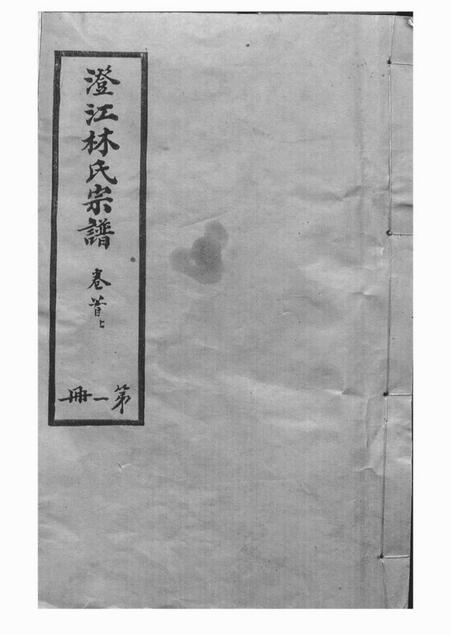 澄江林氏宗譜
卷首上
第一冊